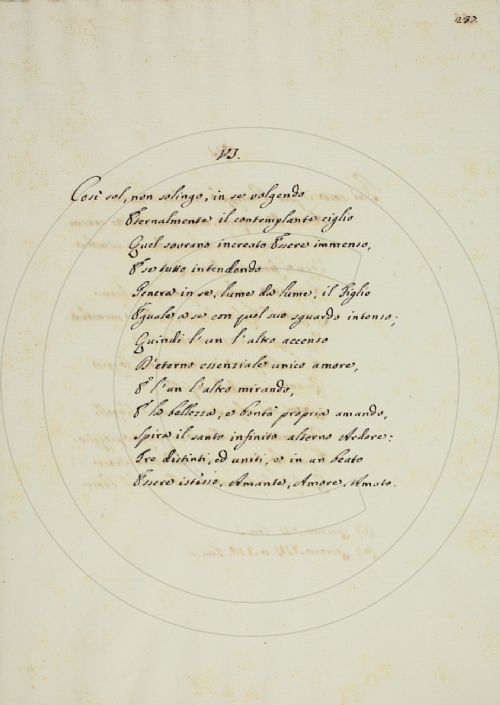 233
VI.
Così sol, non solingo, in se volgendo
Eternalmente il contemplante ciglio
Quel sovrano increato Essere immenso,
E se tutto intendendo
Genera in se, lume da lume, il Figlio
Eguale a se con quel suo sguardo intenso;
Quindi l'un l'altro acceso
D'eterno essenziale unico amore,
E l'un l'altro mirando,
E la bellezza, e bontà propria amando,
Spira il santo infinito alterno Ardore:
Tre distinti, ed uniti, e in un beato
Essere istesso, Amante, Amore, Amato.